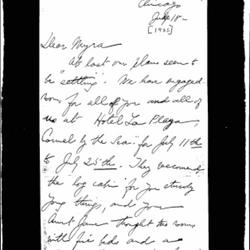 Chicago
July 8 -
[1925]
Dear Myra
At last our plans seem to
be "settling". We have engaged
room for all of you and all of
us at Hotel La Playa,
Carmel by the Sea for July 11th
to July 25th. They recommend
the log cabin for you
young things, and you
Aunt Jane thought two rooms
with five beds and a